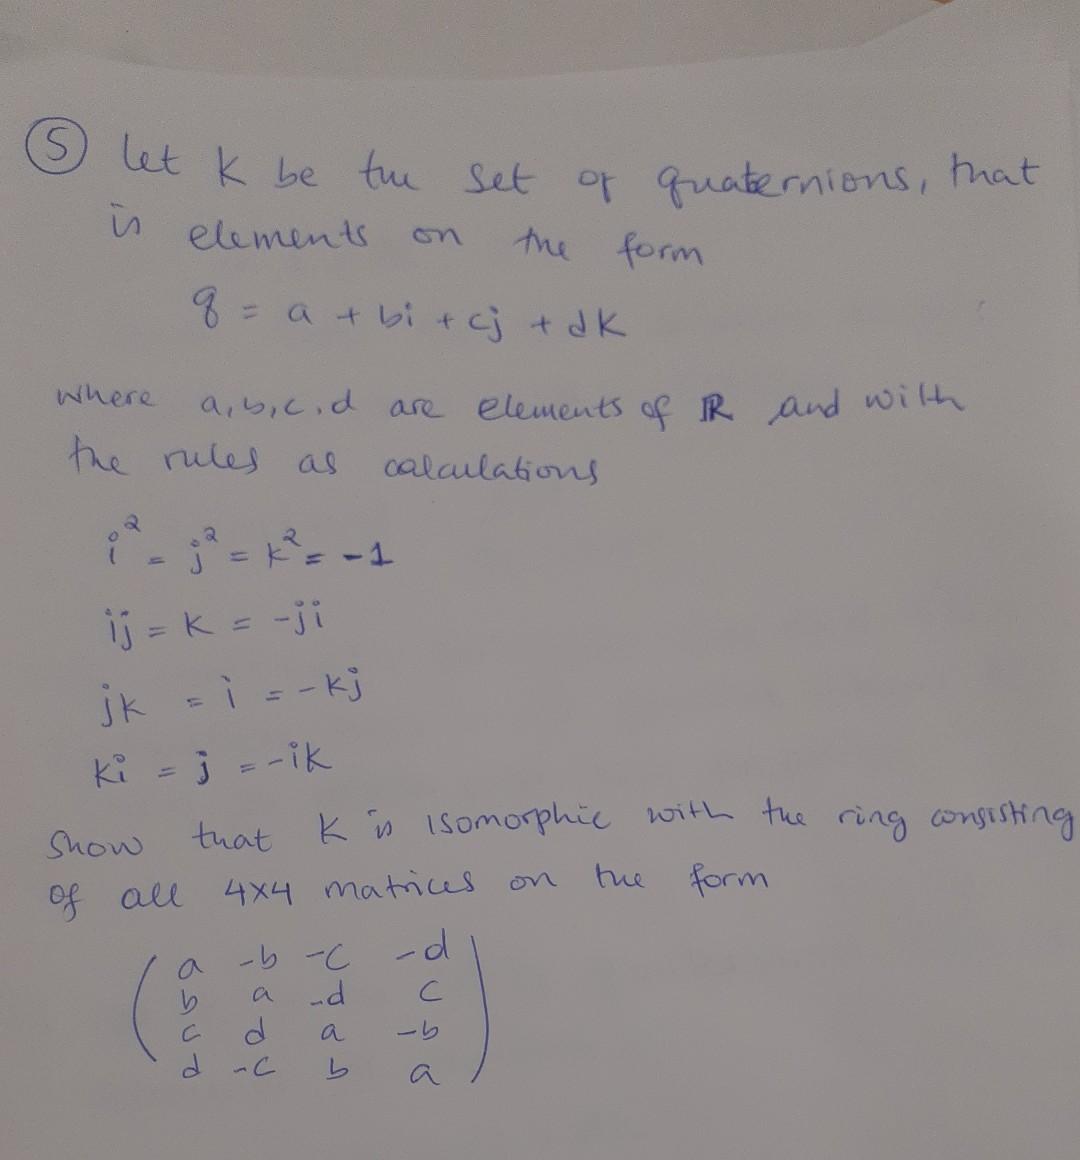 ⑤ let K be the set of quaternions, that
is elements on the form
q = a + bi + cj + dk
where a,b,c,d are elements of ℝ and with
the rules as calculations
i² = j² = k² = -1
ij = k = -ji
jk = i = -kj
ki = j = -ik
Show that K is isomorphic with the ring consisting
of all 4x4 matrices on the form
a -b -c -d
b a -d c
c d a -b
d -c b a